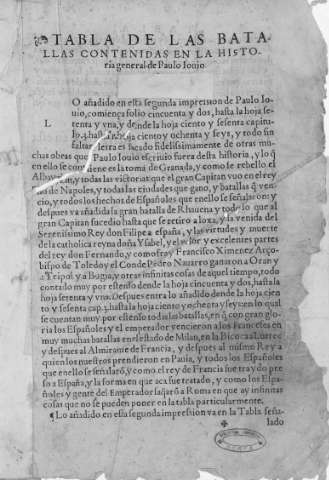 TABLA DE LAS BATA
LLAS CONTENIDAS EN LA HISTO-
ria general de Paulo Iouio.
LO añadido en esta segunda impression de Paulo Io-
uio, comiença folio cincuenta y dos, hasta la hoja se-
tenta y vna, y desde la hoja ciento y sesenta capitu-
lo hasta la hoja ciento y ochenta y seys, y todo sin
faltar letra es sacado fidelissimamente de otras mu
chas obras que Paulo Iouio escriuio fuera desta historia, y lo q̃
en ello se contiene es la toma de Granada, y como se rebello el
y todas las victorias que el gran Capitan vuo en el rey
no de Napoles, y todas las ciudades que gano, y batallas q̃ ven-
cio, y todos los hechos de Españoles que en ello se señalaron: y
despues va añadida la gran batalla de Rhauena y todo lo que al
gran Capitan sucedio hasta que se retiro a loxa, y la venida del
Serenissimo Rey don Felipe a españa, y las virtudes y muerte
de la catholica reyna doña Ysabel, y el valor y excelentes partes
del rey don Fernando, y como fray Francisco Ximenez Arço-
bispo de Toledo y el Conde Pedro Nauarro ganaron a Oran y
a Tripol y a Bugia, y otras infinitas cosas de aquel tiempo, todo
contado muy por estenso desde la hoja cincuenta y dos, hasta la
hoja setenta y vna. Despues entra lo añadido desde la hoja cien
to y sesenta cap. hasta la hoja ciento y ochenta y seys en lo qual
se cuentan muy por estenso todas las batallas, en q̃ con gran glo-
ria los Españoles y el emperador vencieron a los Franceses en
muy muchas batallas en el estado de Milan, en la Bicoca
y despues al Almirante de Francia, y despues al mismo Rey a
quien los nuestros prendieron en Pauia, y todos los Españoles
que en ello se señalarõ, y como el rey de Francia fue traydo pre
so a España, y la forma en que aca fue tratado, y como los Espa-
ñoles y gente del Emperador saqueo a Roma en que ay infinitas
cosas que no se pueden poner en la tabla particularmente.
¶ Lo añadido en esta segunda impression va en la Tabla seña-
lado